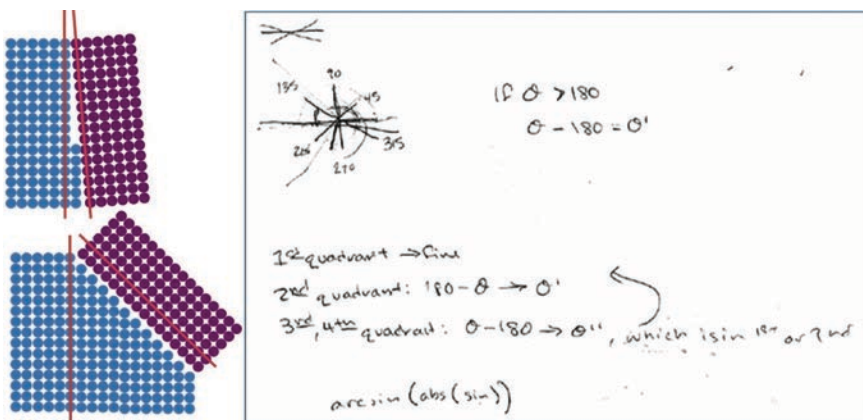 90
135
45
315
270
If θ > 180
θ - 180 = θ'
1st quadrant → fine
2nd quadrant: 180 - θ → θ'
3rd, 4th quadrat: θ - 180 → θ'', which is in 1st or 2nd
arcsin(abs(sin))